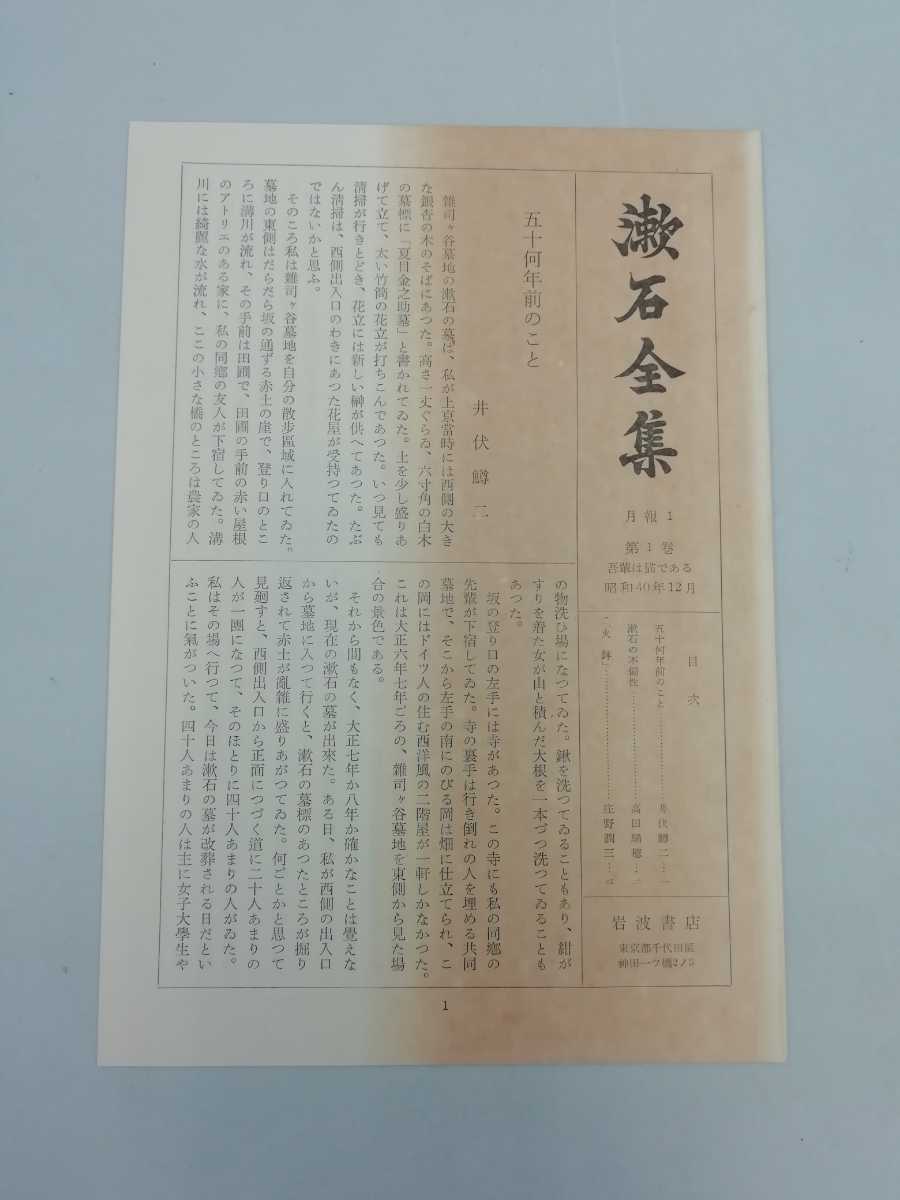 漱石全集
月報 1
第 1 巻
吾輩は猫である
昭和40年12月
目次
五十何年前のこと……井伏鱒二…一
漱石の不偏性……高田瑞穂…
「火鉢」……庄野潤三…
岩波書店
東京都千代田区
神田一ツ橋2ノ3
五十何年前のこと
井伏鱒二
雜司ヶ谷墓地の漱石の墓は、私が上京當時には西側の大き
な銀杏の木のそばにあつた。高さ一丈ぐらゐ、六寸角の白木
の墓標に「夏目金之助墓」と書かれてゐた。土を少し盛りあ
げて立て、太い竹筒の花立が打ちこんであつた。いつ見ても
清掃が行きとどき、花立には新しい榊が供へてあつた。たぶ
ん清掃は、西側出入口のわきにあつた花屋が受持つてゐたの
ではないかと思ふ。
そのころ私は雜司ヶ谷墓地を自分の散歩區域に入れてゐた。
墓地の東側はだらだら坂の通ずる赤土の崖で、登り口のとこ
ろに溝川が流れ、その手前は田圃で、田圃の手前の赤い屋根
のアトリエのある家に、私の同鄕の友人が下宿してゐた。溝
川には綺麗な水が流れ、ここの小さな橋のところは農家の人
の物洗ひ場になつてゐた。鍬を洗つてゐることもあり、紺が
すりを着た女が山と積んだ大根を一本づつ洗つてゐることも
あつた。
坂の登り口の左手には寺があつた。この寺にも私の同鄕の
先輩が下宿してゐた。寺の裏手は行き倒れの人を埋める共同
墓地で、そこから左手の南にのびる岡は畑に仕立てられ、こ
の岡にはドイツ人の住む西洋風の二階屋が一軒しかなかつた。
これは大正六年七年ごろの、雜司ヶ谷墓地を東側から見た場
合の景色である。
それから間もなく、大正七年か八年か確かなことは覺えな
いが、現在の漱石の墓が出來た。ある日、私が西側の出入口
から墓地に入つて行くと、漱石の墓標のあつたところが掘り
返されて赤土が亂雜に盛りあがつてゐた。何ごとかと思つて
見𢌞すと、西側出入口から正面につづく道に二十人あまりの
人が一團になつて、そのほとりに四十人あまりの人がゐた。
私はその場へ行つて、今日は漱石の墓が改葬される日だとい
ふことに氣がついた。四十人あまりの人は主に女子大學生や
1